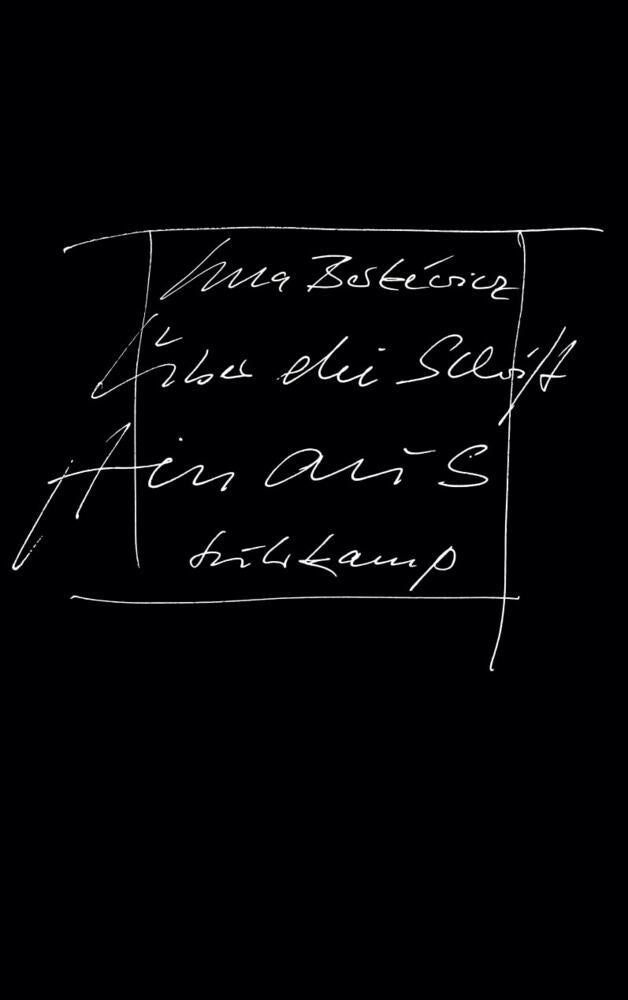 Ulla Berkéwicz
Über die Schrift
hinaus
Suhrkamp